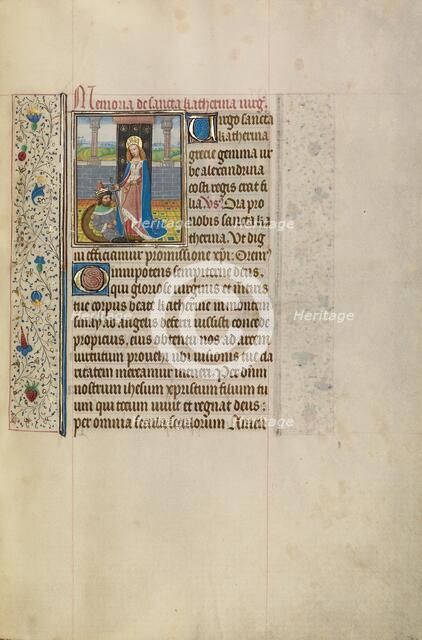 Memoria de sancta katherina uirg̃.
Uirgo sancta
katherina
grecie gemma ur
be alexandrina
costi regis erat fi
lia Vs̃ Ora pro
nobis sancta ka
therina. Vt dig
ni efficiamur promissione xp̃i. Orem9
Omnipotens sempiterne deus.
qui gloriose uirginis et martiris
tue corpus beate katherine in montem
sinay ab angelis deferri iussisti concede
propicius, eius obtentu nos ad arcem
uirtutum prouehi ubi uisionis tue cla
ritatem mereamur intueri. Per dñm
nostrum ihesum xpristum filium tu
um qui tecum uiuit et regnat deus:
per omnia secula seculorum. Amen
Heritage
Heritage
Heritage
Heritage